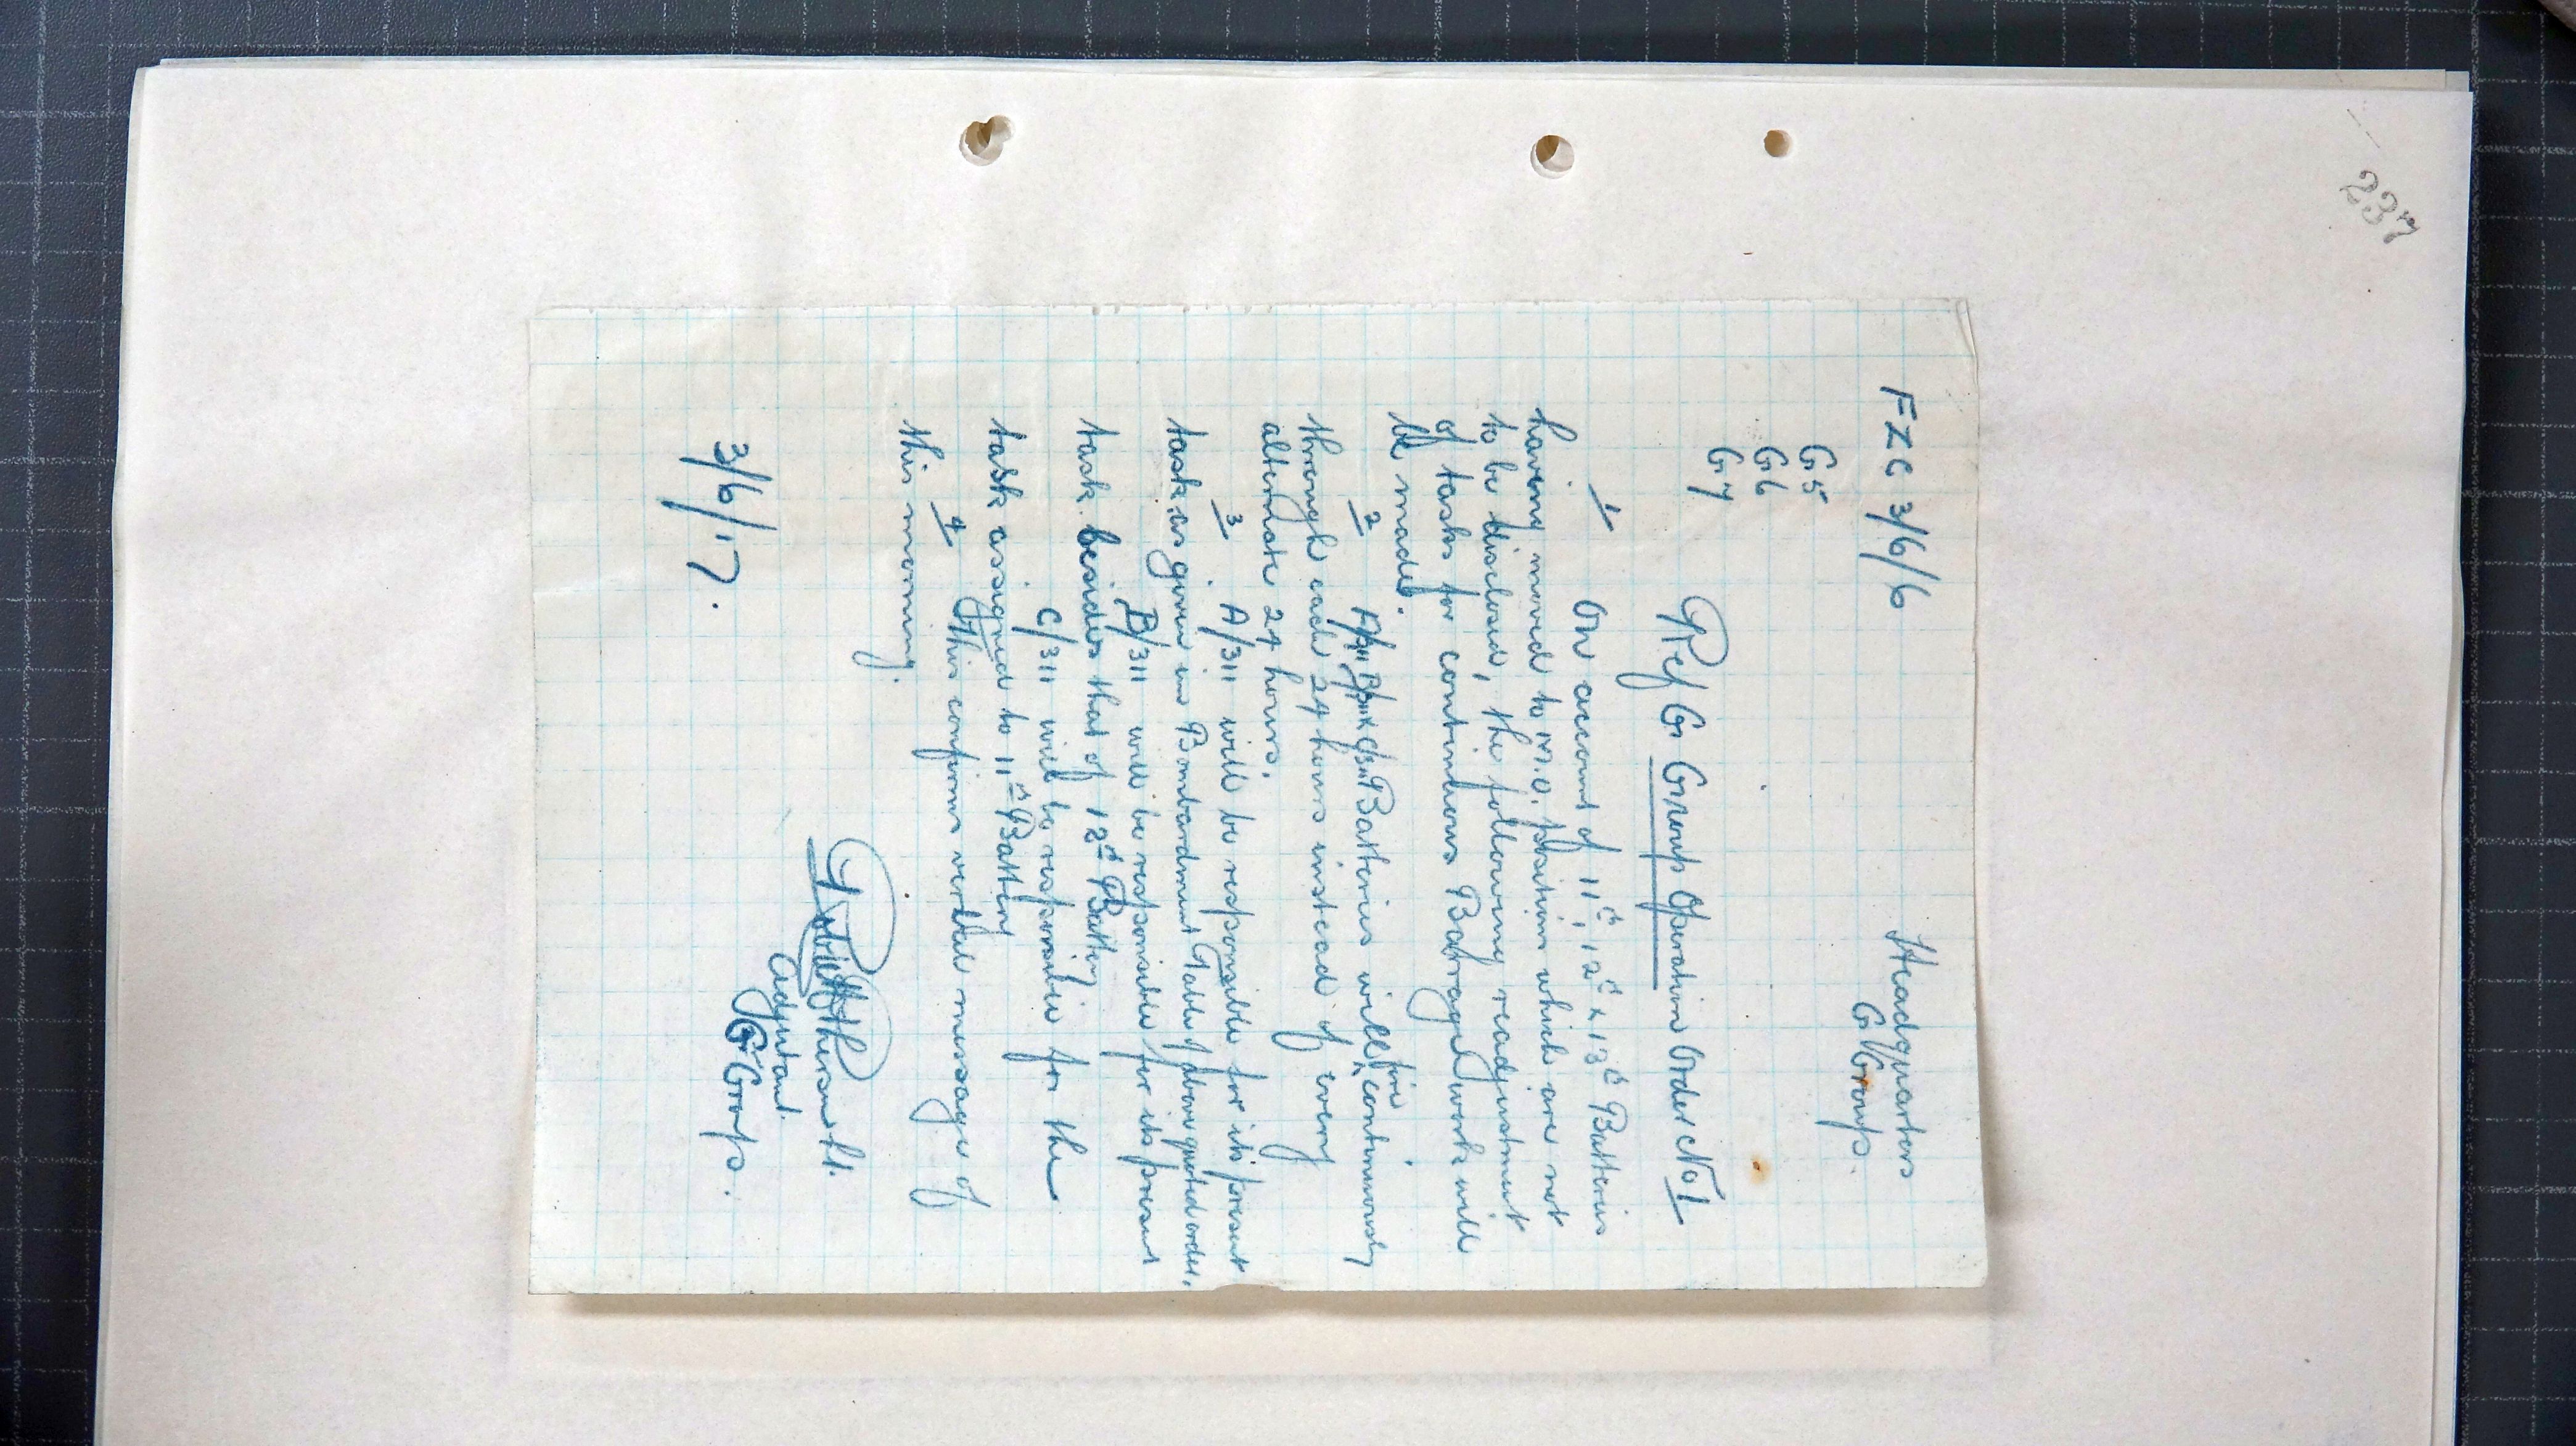 237
FZC 3/6/6
Headquarters
G Group.
G5
G6
G7
Ref G Group Operation Order No 1
1 On account of 11th, 12th & 13th Batteries
having moved to M.O. positions which are not
to be disclosed, the following readjustment
of tasks for continuous Barrage work will
be made.
2 A/311 B/311 & C/311 Batteries will fire continuously
through each 24 hours instead of every
alternate 24 hours.
3 A/311 will be responsible for its present
task as given in Bombardment Table of above quoted order.
B/311 will be responsible for its present
task besides that of 12th Battery
C/311 will be responsible for the
task assigned to 11th Battery
4 This confirms verbal message of
this morning.
Lt.
Adjutant
3/6/17. G Group.